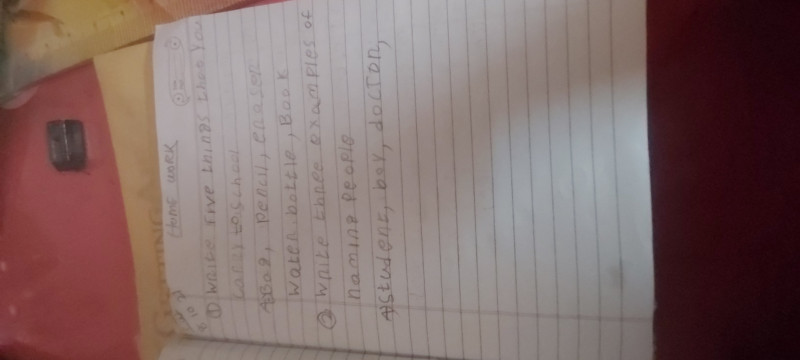 Home work
① write five things that you
carry to school
A) Bag, pencil, eraser
water bottle, Book
② write three examples of
naming people
A) Student, boy, doctor,